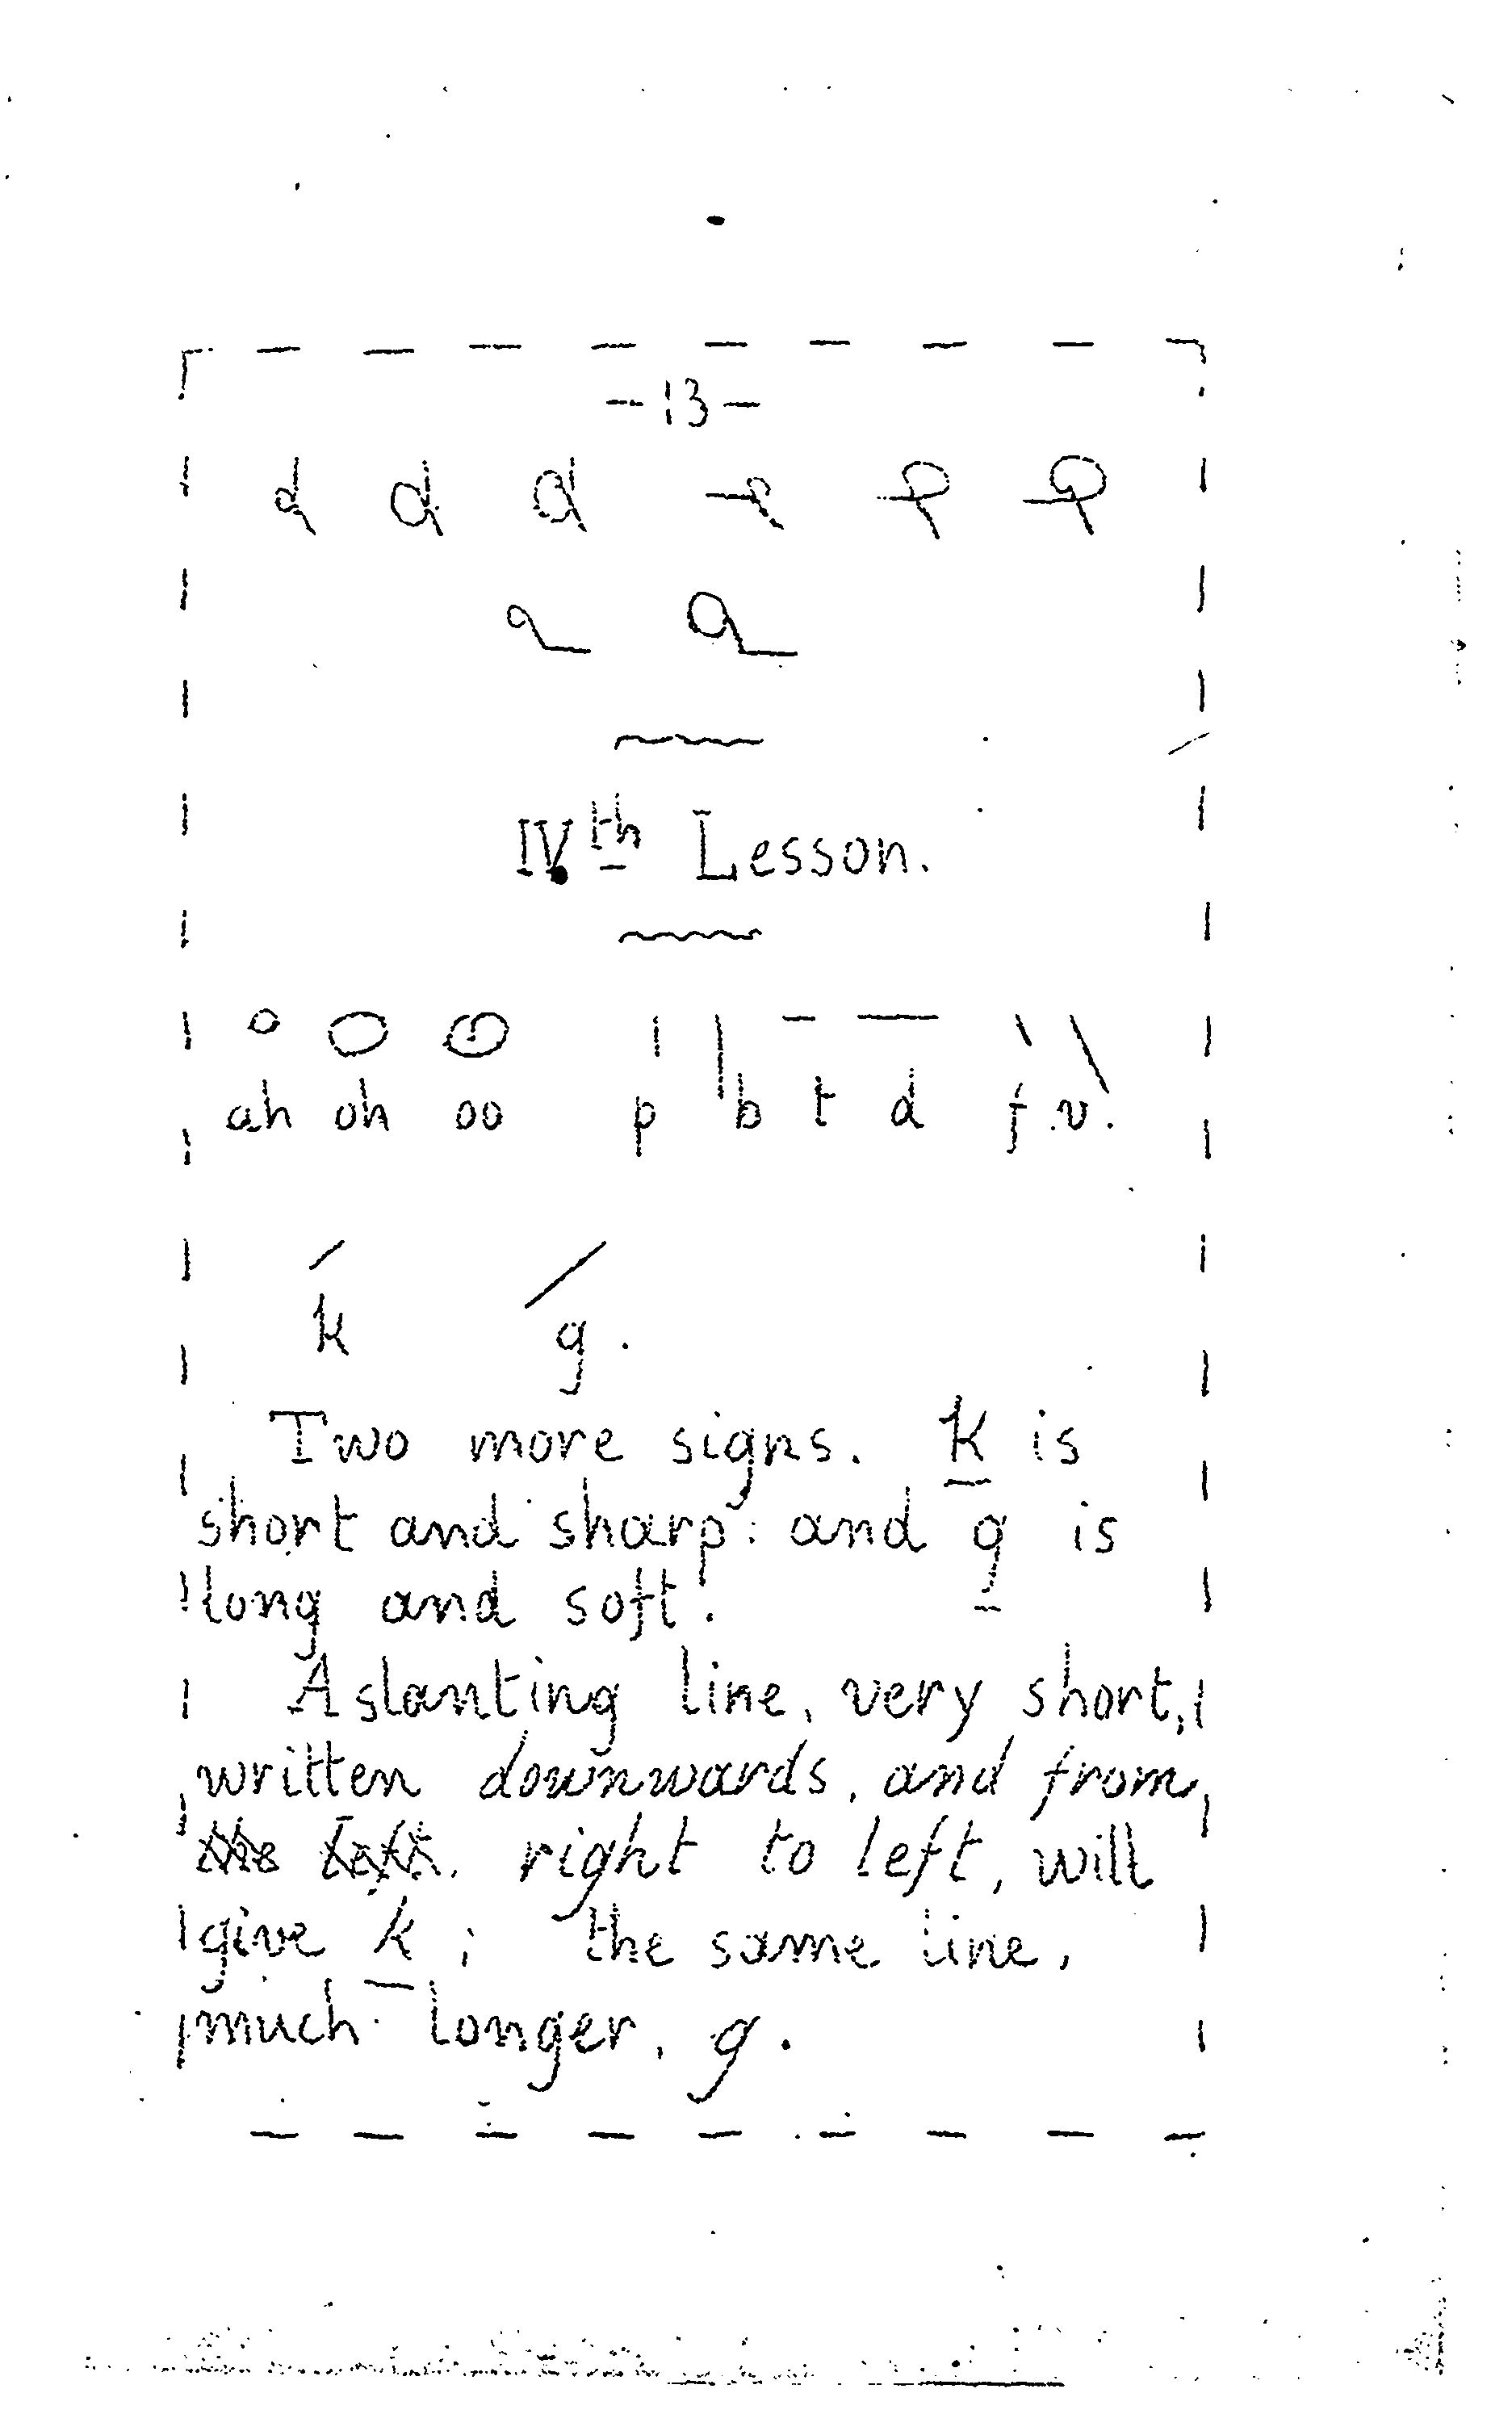 -13-
IVth Lesson.
ah oh oo p b t d f v.
k g.
Two more signs. k is
short and sharp: and g is
long and soft.
A slanting line, very short,
written downwards, and from
the left. right to left, will
give k; the same line,
much longer, g.